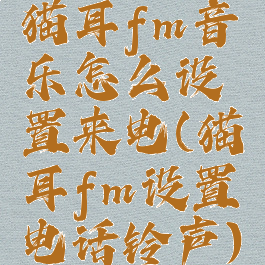 猫耳fm音
乐怎么设
置来电(猫
耳fm设置
电话铃声)